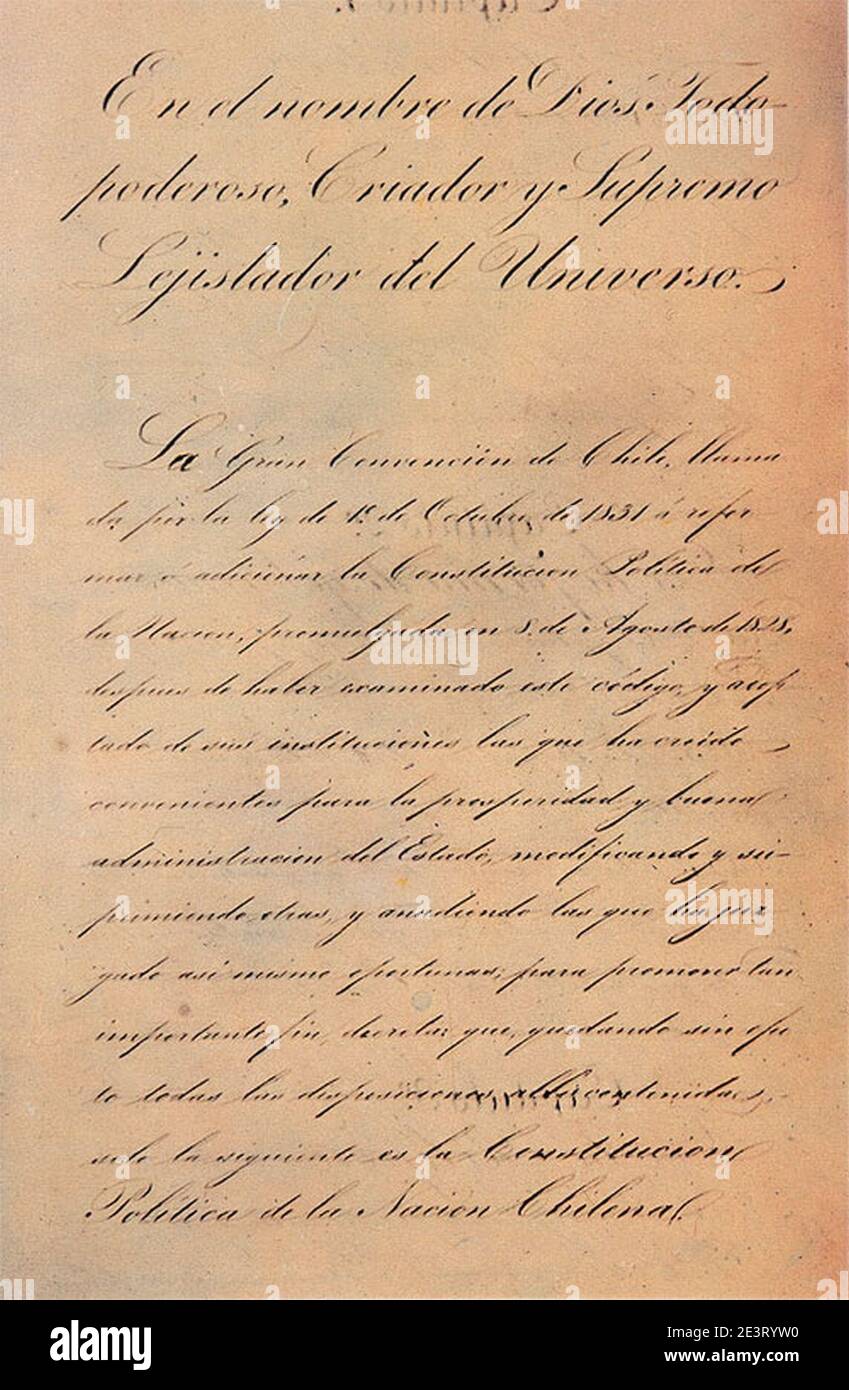 En el nombre de Dios Todo-
poderoso, Criador y Supremo
Lejislador del Universo.
La Gran Convencion de Chile, llama
da por la ley de 1º de Octubre de 1831 á refor
mar ó adicionar la Constitucion Politica de
la Nacion, promulgada en 8 de Agosto de 1828,
despues de haber examinado este código, y adop
tado de sus instituciones las que ha creido
convenientes para la prosperidad y buena
administracion del Estado, modificando y su-
primiendo otras, y añadiendo las que ha juz
gado asi mismo oportunas, para promover tan
importante fin, decreta: que, quedando sin efec
to todas las disposiciones alli contenidas,
solo la siguiente es la Constitucion
Politica de la Nacion Chilena.
alamy
Image ID: 2E3RYW0
www.alamy.com